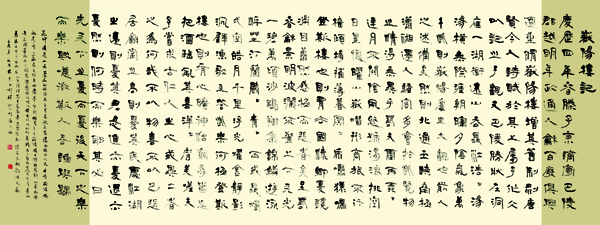 嶽陽樓記
慶歷四年春滕子京謫守巴陵
郡越明年政通人和百廢俱興
乃重修嶽陽樓增其舊制刻唐
賢今人詩賦於其上屬予作文
以記之予觀夫巴陵勝狀在洞
庭一湖銜遠山吞長江浩浩湯
湯橫無際涯朝暉夕陰氣象萬
千此則嶽陽樓之大觀也前人
之述備矣然則北通巫峽南極
瀟湘遷客騷人多會於此覽物
之情得無異乎若夫霪雨霏霏
連月不開陰風怒號濁浪排空
日星隱曜山嶽潛形商旅不行
檣傾楫摧薄暮冥冥虎嘯猿啼
登斯樓也則有去國懷鄉憂讒
畏譏滿目蕭然感極而悲者矣
至若春和景明波瀾不驚上下天光
一碧萬頃沙鷗翔集錦鱗游泳
岸芷汀蘭郁郁青青而或長煙
一空皓月千里浮光躍金靜影
沉璧漁歌互答此樂何極登斯
樓也則有心曠神怡寵辱皆忘
把酒臨風其喜洋洋者矣嗟夫
予嘗求古仁人之心或異二者
之為何哉不以物喜不以己悲
居廟堂之高則憂其民處江湖
之遠則憂其君是進亦憂退亦
憂然則何時而樂耶其必曰
先天下之憂而憂後天下之樂
而樂歟噫微斯人吾誰與歸